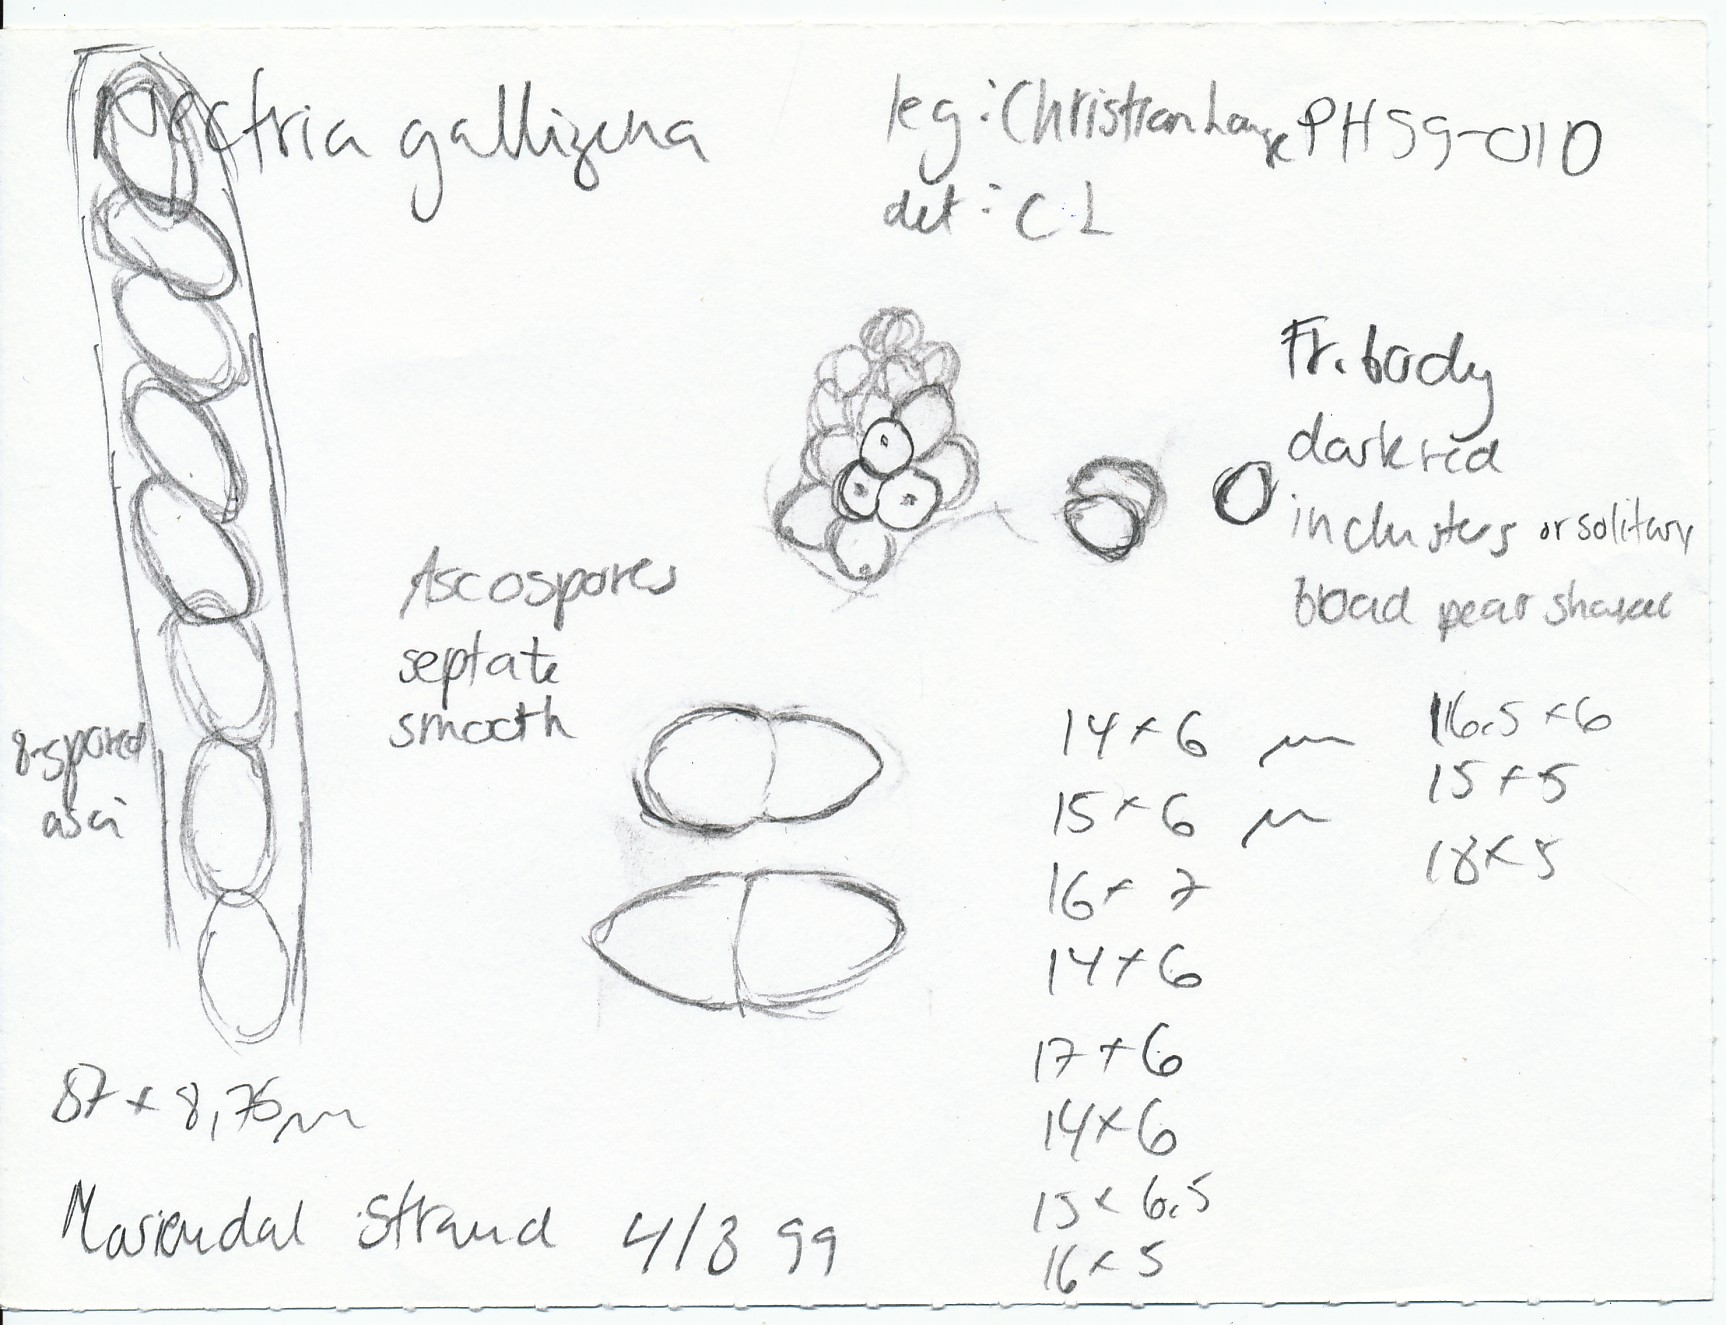 Nectria galligena
leg: Christian Lange PH99-010
det: CL
Fr. body
dark red
in clusters or solitary
broad pear shaped
Ascospores
septate
smooth
8-spored
asci
14 x 6 µm
15 x 6 µm
16 x 7
14 x 6
17 x 6
14 x 6
15 x 6.5
16 x 5
16.5 x 6
15 x 5
18 x 5
87 x 8,75 µm
Mariendal Strand 4/3 99